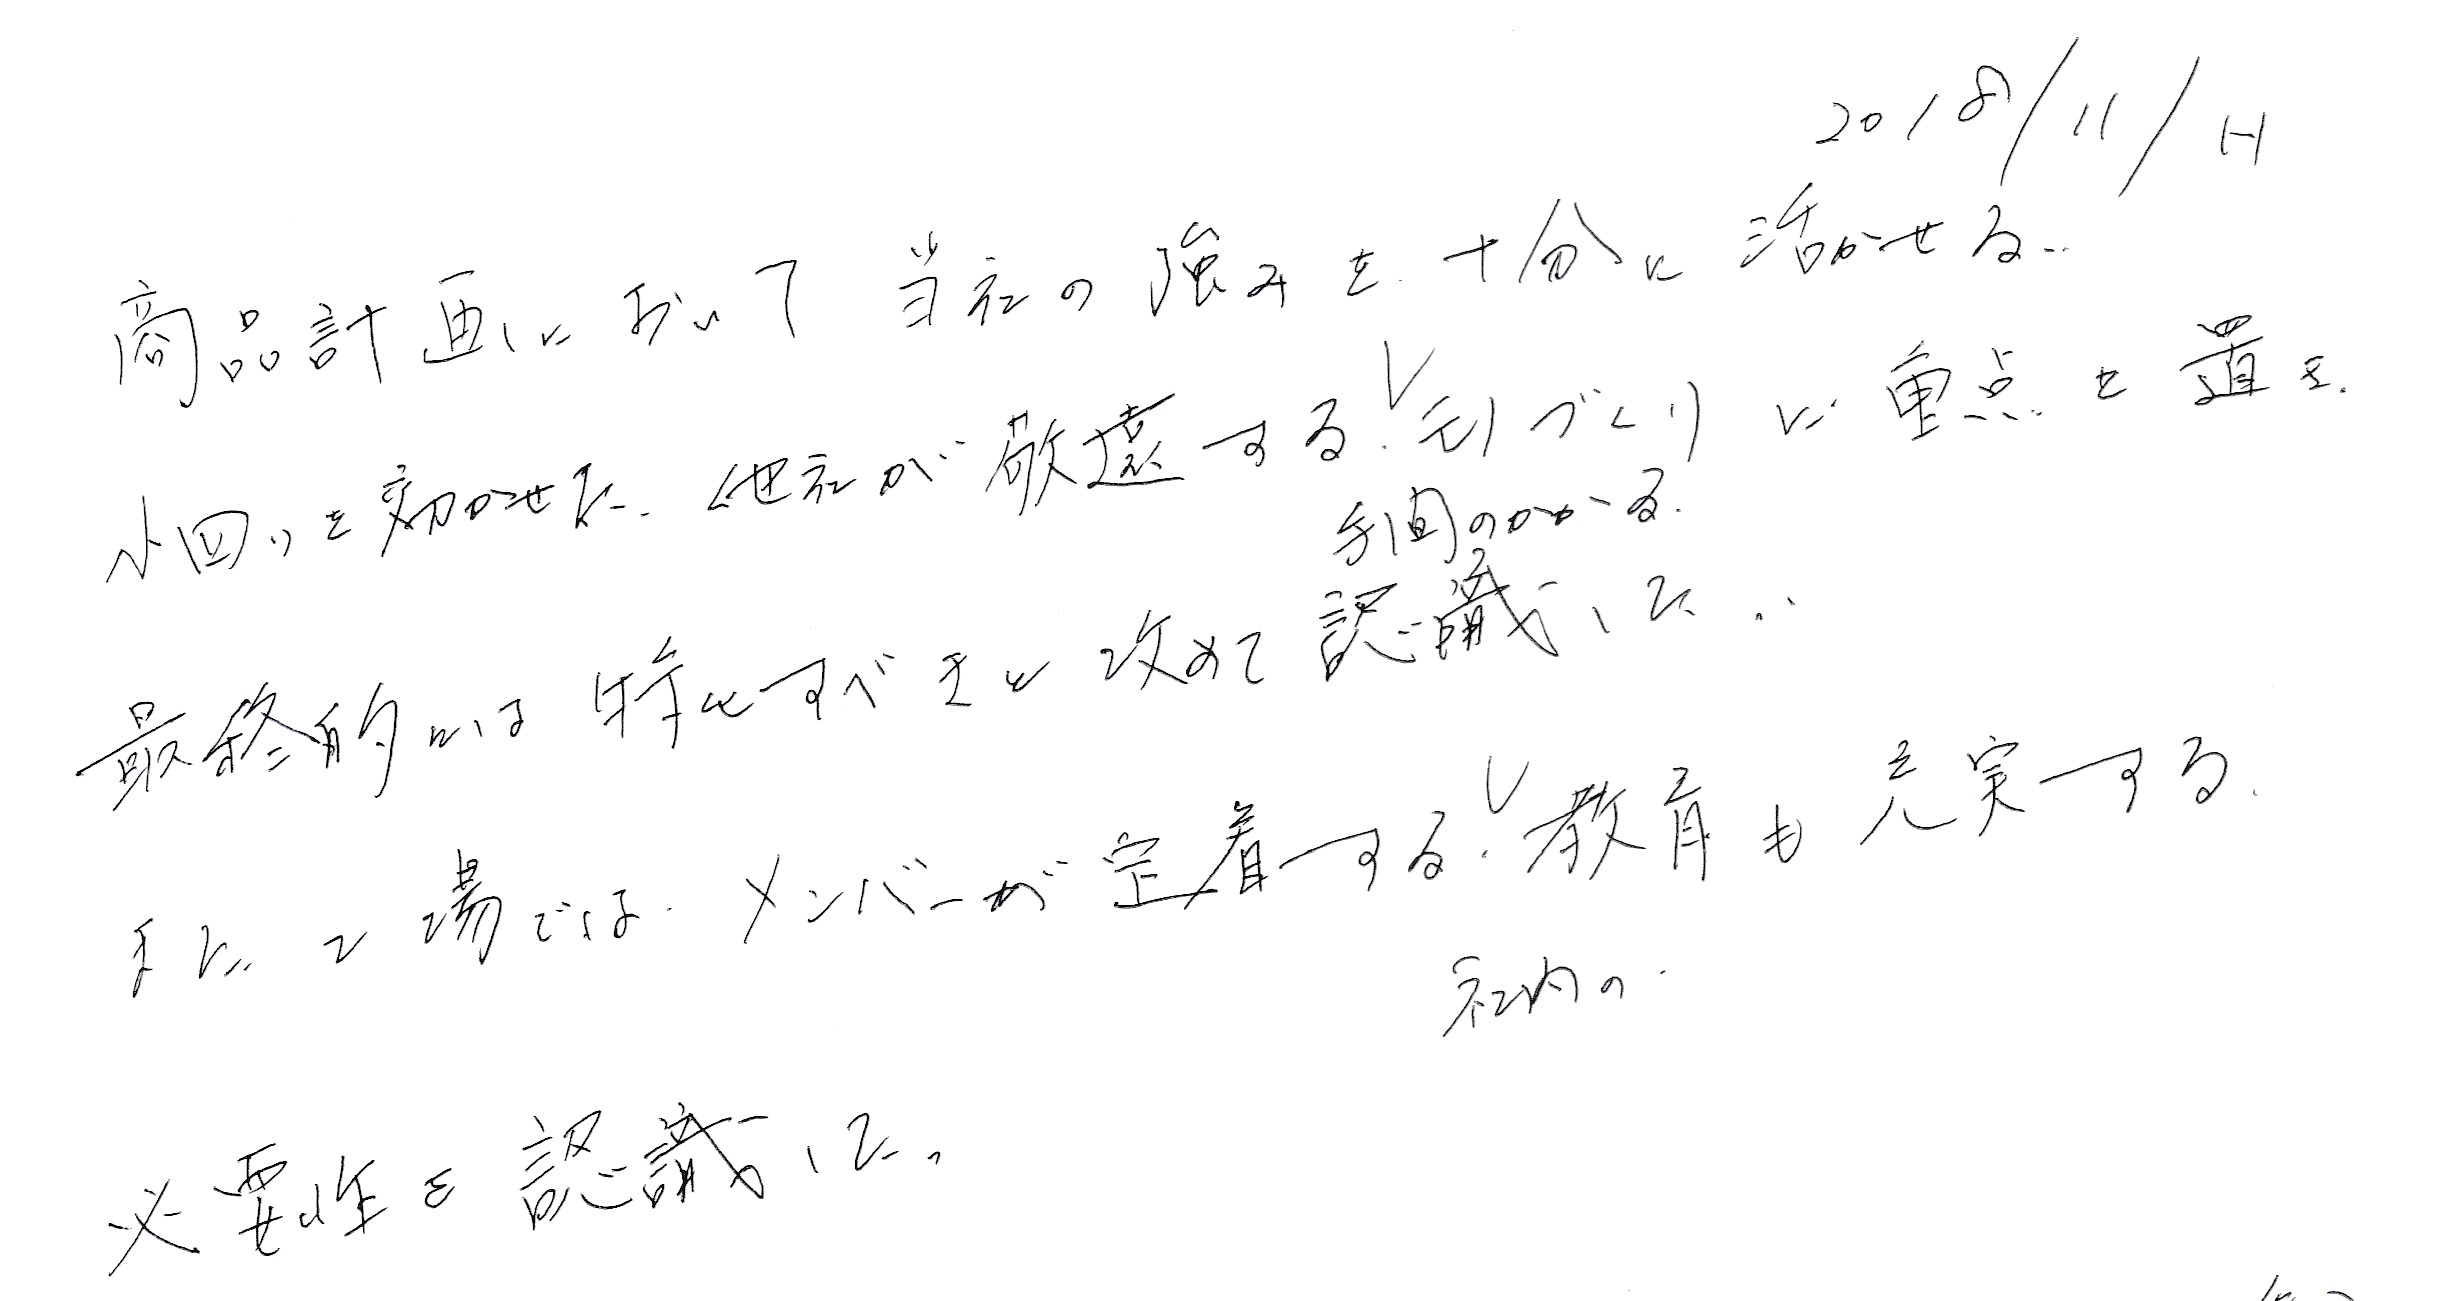 2018/11/11
商品計画において当社の強みを十分に活かせる
小回りを効かせた、他社が敬遠する、型づくりに重点を置き
手間のかかる
最終的には特化すべきと改めて認識した。
また工場では、メンバーが定着する、教育も充実する
社内の
必要性を認識した。